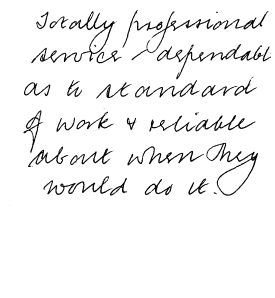 Totally professional
service - dependabl
as to standard
of work & reliable
about when they
would do it.